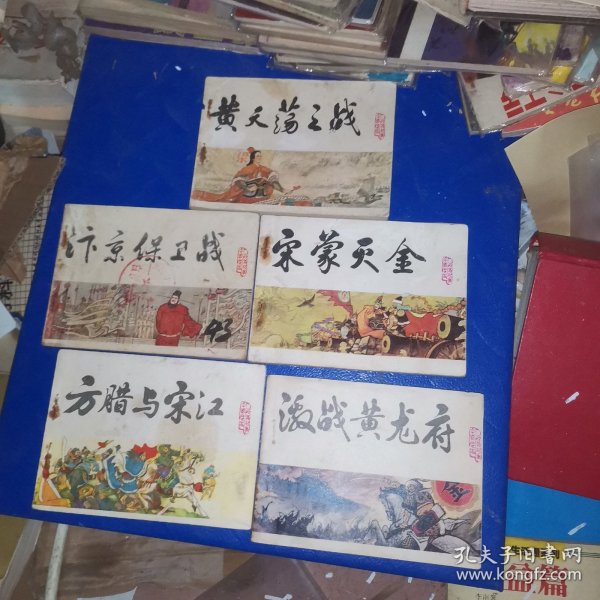 黄天荡之战
汴京保卫战
宋蒙灭金
方腊与宋江
激战黄龙府
金
孔夫子旧书网
www.kongfz.com
篇